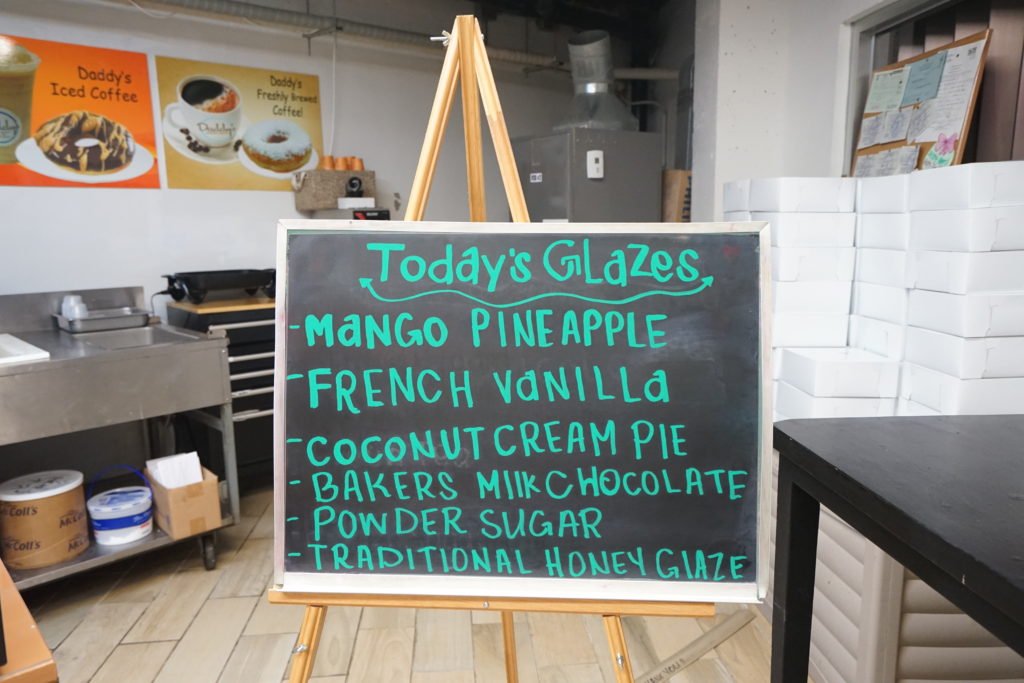 Daddy's
Iced Coffee
Daddy's
Freshly Brewed
Coffee!
Daddy's
Today's Glazes
- Mango Pineapple
- French Vanilla
- Coconut Cream Pie
- Bakers Milk Chocolate
- Powder Sugar
- Traditional Honey Glaze
McCall's
McCall's